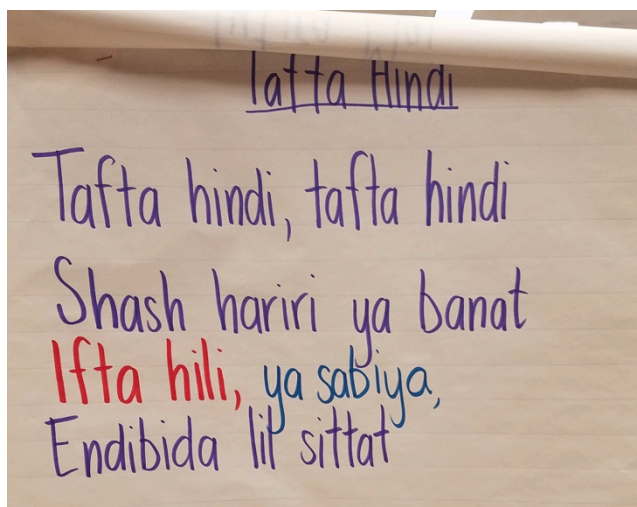 Tafta Hindi
Tafta hindi, tafta hindi
Shash hariri ya banat
Ifta hili, ya sabiya,
Endibida lil sittat